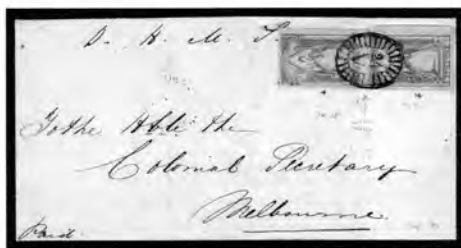 O. H. M. S.
To the Hble the
Colonial Secretary
Melbourne.
Paid.